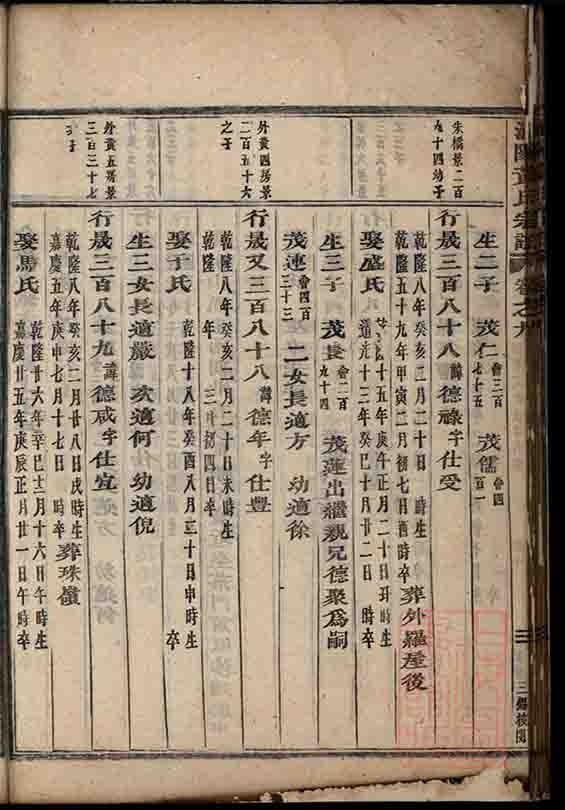 氏宗譜 卷之九
生二子 茂仁 會三百七十五 茂儒 會四百一
朱橋景二百九十四幼子
行晟三百八十八 諱 德祿 字 仕受
乾隆八年癸亥三月二十日 時生
五十九年甲寅二月初七日酉時卒 葬外羅屋後
娶盛氏 十五年庚午正月二十日 時生
道光十三年癸巳十月廿二日 時卒
生三子 茂長 會二百九十四 茂蓮出繼親兄德聚爲嗣
茂連 會四百三十三 二女長適方 幼適徐
外黃四房景二百五十六之子
行晟又三百八十八 諱 德年 字 仕豊
乾隆八年癸亥二月二十日未時生
年 三月初四日卒
娶于氏 乾隆十八年癸酉八月三十日申時生
卒
生三女長適嚴 次適何 幼適倪
外黃五房景三百三十七 子
行晟三百八十九 諱 德咸 字 仕宜
乾隆八年癸亥二月廿八日戌時生
嘉慶五年庚申七月十七日 時卒 葬珠嶺
娶馬氏 乾隆廿六年辛巳十二月十六日午時生
嘉慶廿五年庚辰正月廿一日午時卒